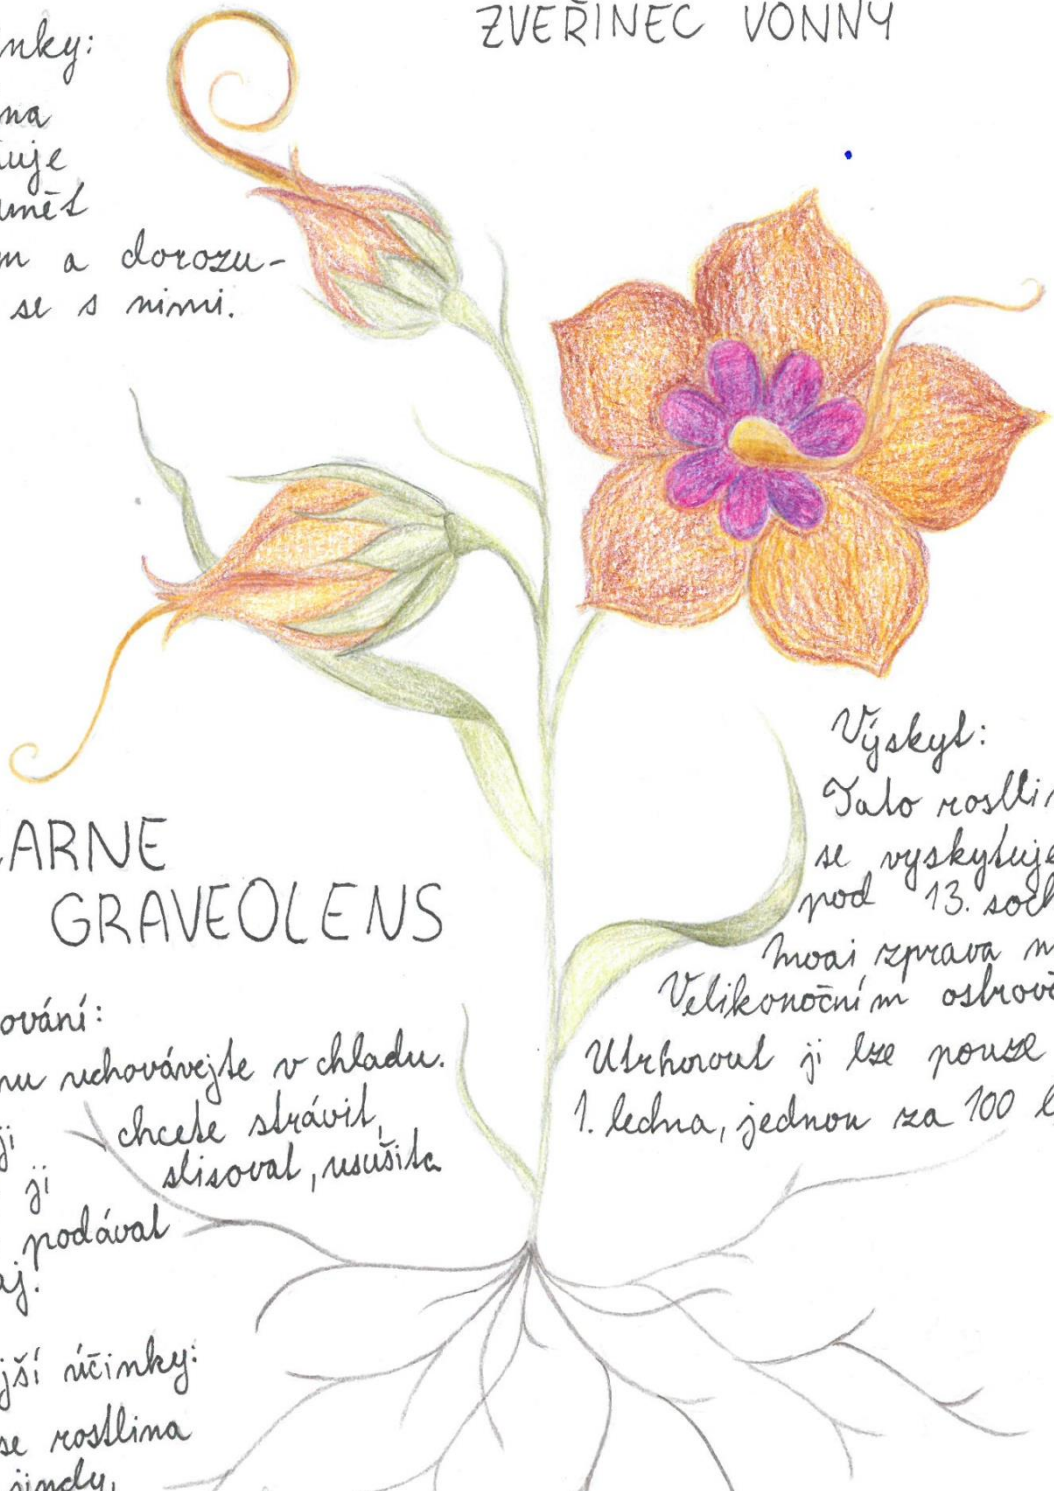 ZVEŘINEC VONNÝ
inky:
na
uje
umět
m a dorozu-
se s nimi.
Výskyt:
Tato rostlin
se vyskytuje
pod 13. soch
moai zprava n
Velikonočním ostrově
Utrhnout ji lze pouze
1. ledna, jednou za 100 l
ARNE
GRAVEOLENS
ování:
nu uchovávejte v chladu.
ji chcete strávit,
ji slisovat, usušit a
podávat
aj.
jší účinky:
se rostlina
jindy,